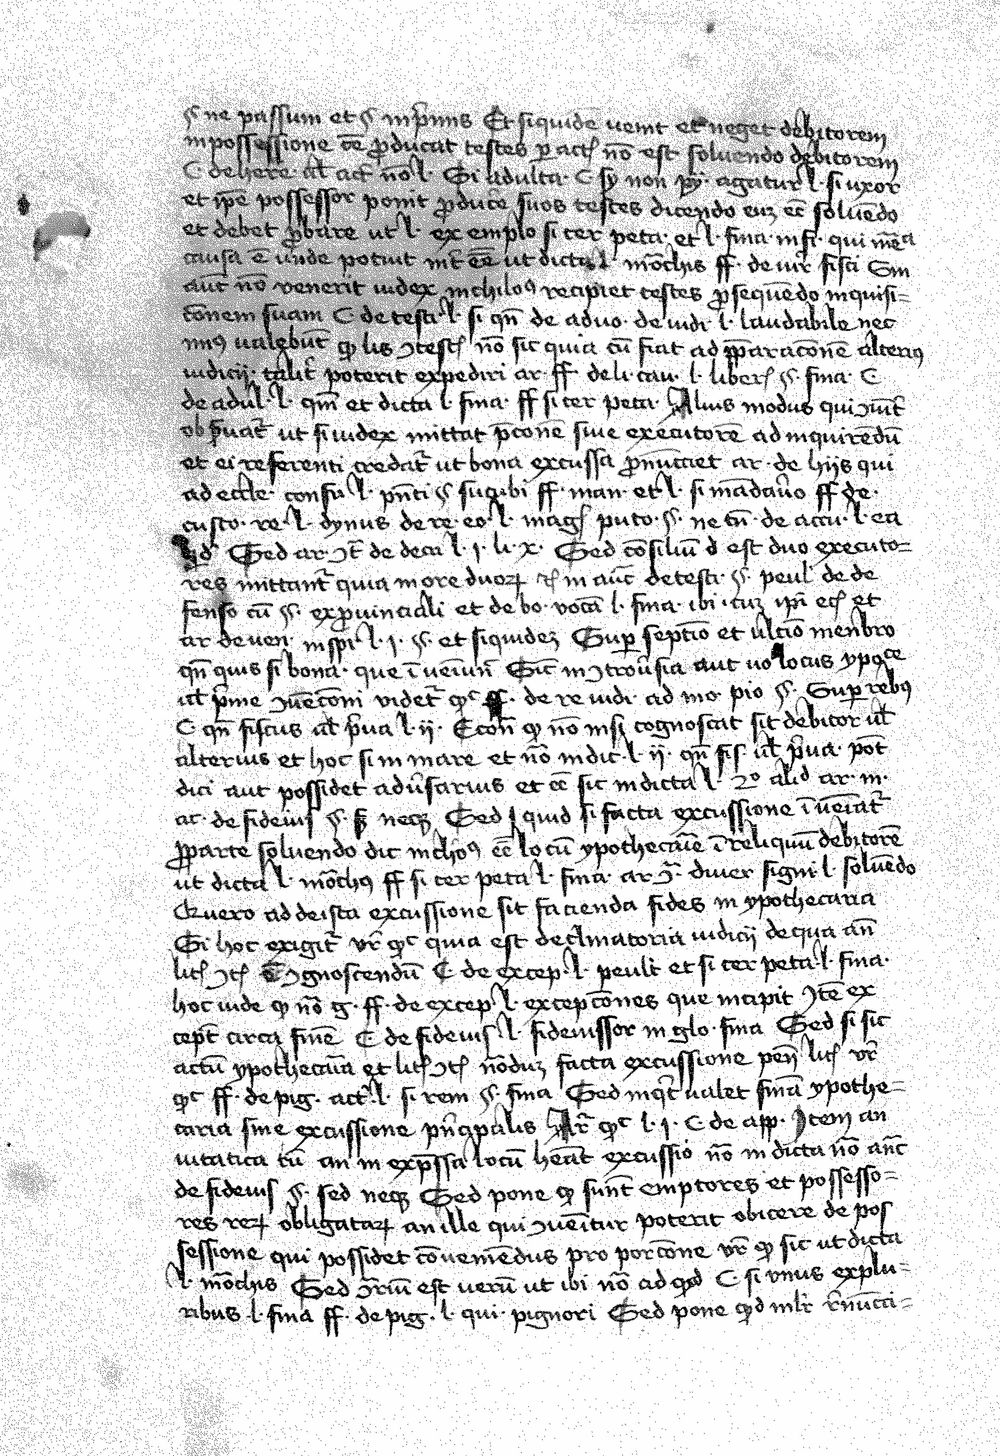 § ne passum et § inprimis Et siquidē uenit et neget debitorem
inpossessione eē p̄ducat testes per act̄ nō est soluendo debitorem
C de here uł act nō l. Si adulta C sy non pp̄. agatur l. si uxor
et ip̄e possessor ponit p̄duc̄e suos testes dicendo eū eē soluēdo
et debet p̄bare ut l. exemplo si cer peta et l. fina infi. qui mēa
causa ē unde potuit inc̄ eē ut dicta l. mōchis ff. de iur fisci Sin
aut nō venerit iudex inchilo⁹ recipiet testes p̄sequēdo inquisi=
cōnem suam C de testi l. si qn̄ de aduo. de iudi l. laudabile nec
min⁹ ualebūt qp lis ɔtest nō sit quia cū fiat ad p̄paracōnē alteri⁹
iudicij talit̄ poterit expediri ar. ff de li. cau. l. liber § fina C
de adul. l. qm̄ et dicta l. fina ff si cer peta. Alius modus qui ɔuit̄
ob p̄uat̄ ut si iudex mittat p̄conē siue executorē ad inquirēdū
et ei referenti credat̄ ut bona excussa p̄nūcciet ar. de hijs qui
ad eccle. confu l. pn̄ti § sicubi ff. man. et l. si mādauo ff de.
custo. re. l. dynus de re. eo. l. mag puto. § ne cū. de accu. l. ea
qd̄ Sed ar. ɔt̄ de deca l. i. li. x. Sed cōsiliū d est duo executo=
res mittant̄ quia in ore duoꝝ et in auc̄ de testi. § peul de de
fenso cū § exprouinciali et de bo. vocā l. fina. ibi cuꝫ ip̄i et
ar de uen. inspi l. i. § et siquidem Sup septio et ultio menbro
qn̄ quis si bona que iueniūt̄ Sit in ɔtrou̇sia aut uo locus ypoce
uł p̄me ɔuēcōni videt̄ qc ff. de re iudi. ad mo. pio § Super reb⁹
C qn̄ fiscus uł p̄ua l. ij. Econ̄ qp nō insꝫ cognoscat sit debitor uł
alterius et hoc si in mare et nō indic l. ij. qn̄ fis. uł p̄ua. pōt
dici aut possidet adu̇sarius et eē sic in dicta l. 2º alid̄ ar. in.
ac. de fideius § sꝫ neqꝫ Sed quid si facta excussione iueniat̄
p̄parte soluendo dic inchō⁹ eē locū ypothecarie i reliquū debitorē
ut dicta l. mōch⁹ ff si cer peta l. fina ar ɔ̄. diuer signi l. soluēdo
Quero ad deista excussione sit facienda fides in ypothecaria
Si hoc exigit̄ vr̄ qc quia est declinatoria iudicij de qua an̄
lit ɔt ē ɔgnoscendū C de excep. l. peulit et si cer peta l. fina.
hoc uide qp nō g. ff. de excep l. excepcōnes que incipit Itē ex
cept̄ circa finē C de fideius l. fideiussor in glo. fina Sed si sit
actū ypothecaria et lit ɔt nōdū facta excussione pen̄ lit vr̄
qc ff. de pig. act l. si rem § fina Sed inqt̄ ualet sn̄ia ypothe=
caria sine excussione p̄ncipalis Ar̄ qc l. i. C de app. Item an
uitatica cū an in exp̄ssa locū heāt excussio nō in dicta nō auc̄
de fideius § sed neqꝫ Sed pone qp sunt emptores et possesso=
res reꝝ obligataꝝ an ille qui ɔuenitur poterit obicere de pos
sessione qui possidet cōueniēdus pro porcōne vr̄ qp sic ut dicta
l. mōchis Sed ɔr̄iū est uerū ut ibi nō ad qd̄ C. si vnus explu=
ribus l. fina ff. de pig. l. qui pignori Sed pone qd̄ mlr̄ r̄nūcci=